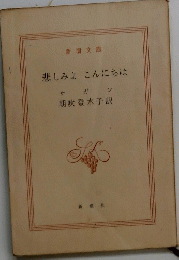 新潮文庫
悲しみよ こんにちは
サガン
朝吹登水子訳
新潮社